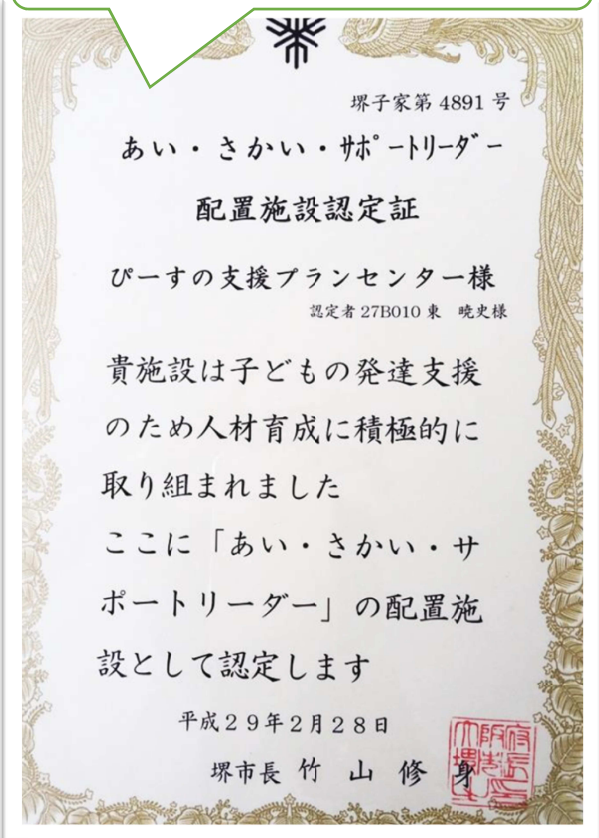 堺子家第 4891 号
あい・さかい・サポートリーダー
配置施設認定証
ぴーすの支援プランセンター様
認定者 27B010 東 暁史様
貴施設は子どもの発達支援
のため人材育成に積極的に
取り組まれました
ここに「あい・さかい・サ
ポートリーダー」の配置施
設として認定します
平成29年2月28日
堺市長 竹 山 修 身